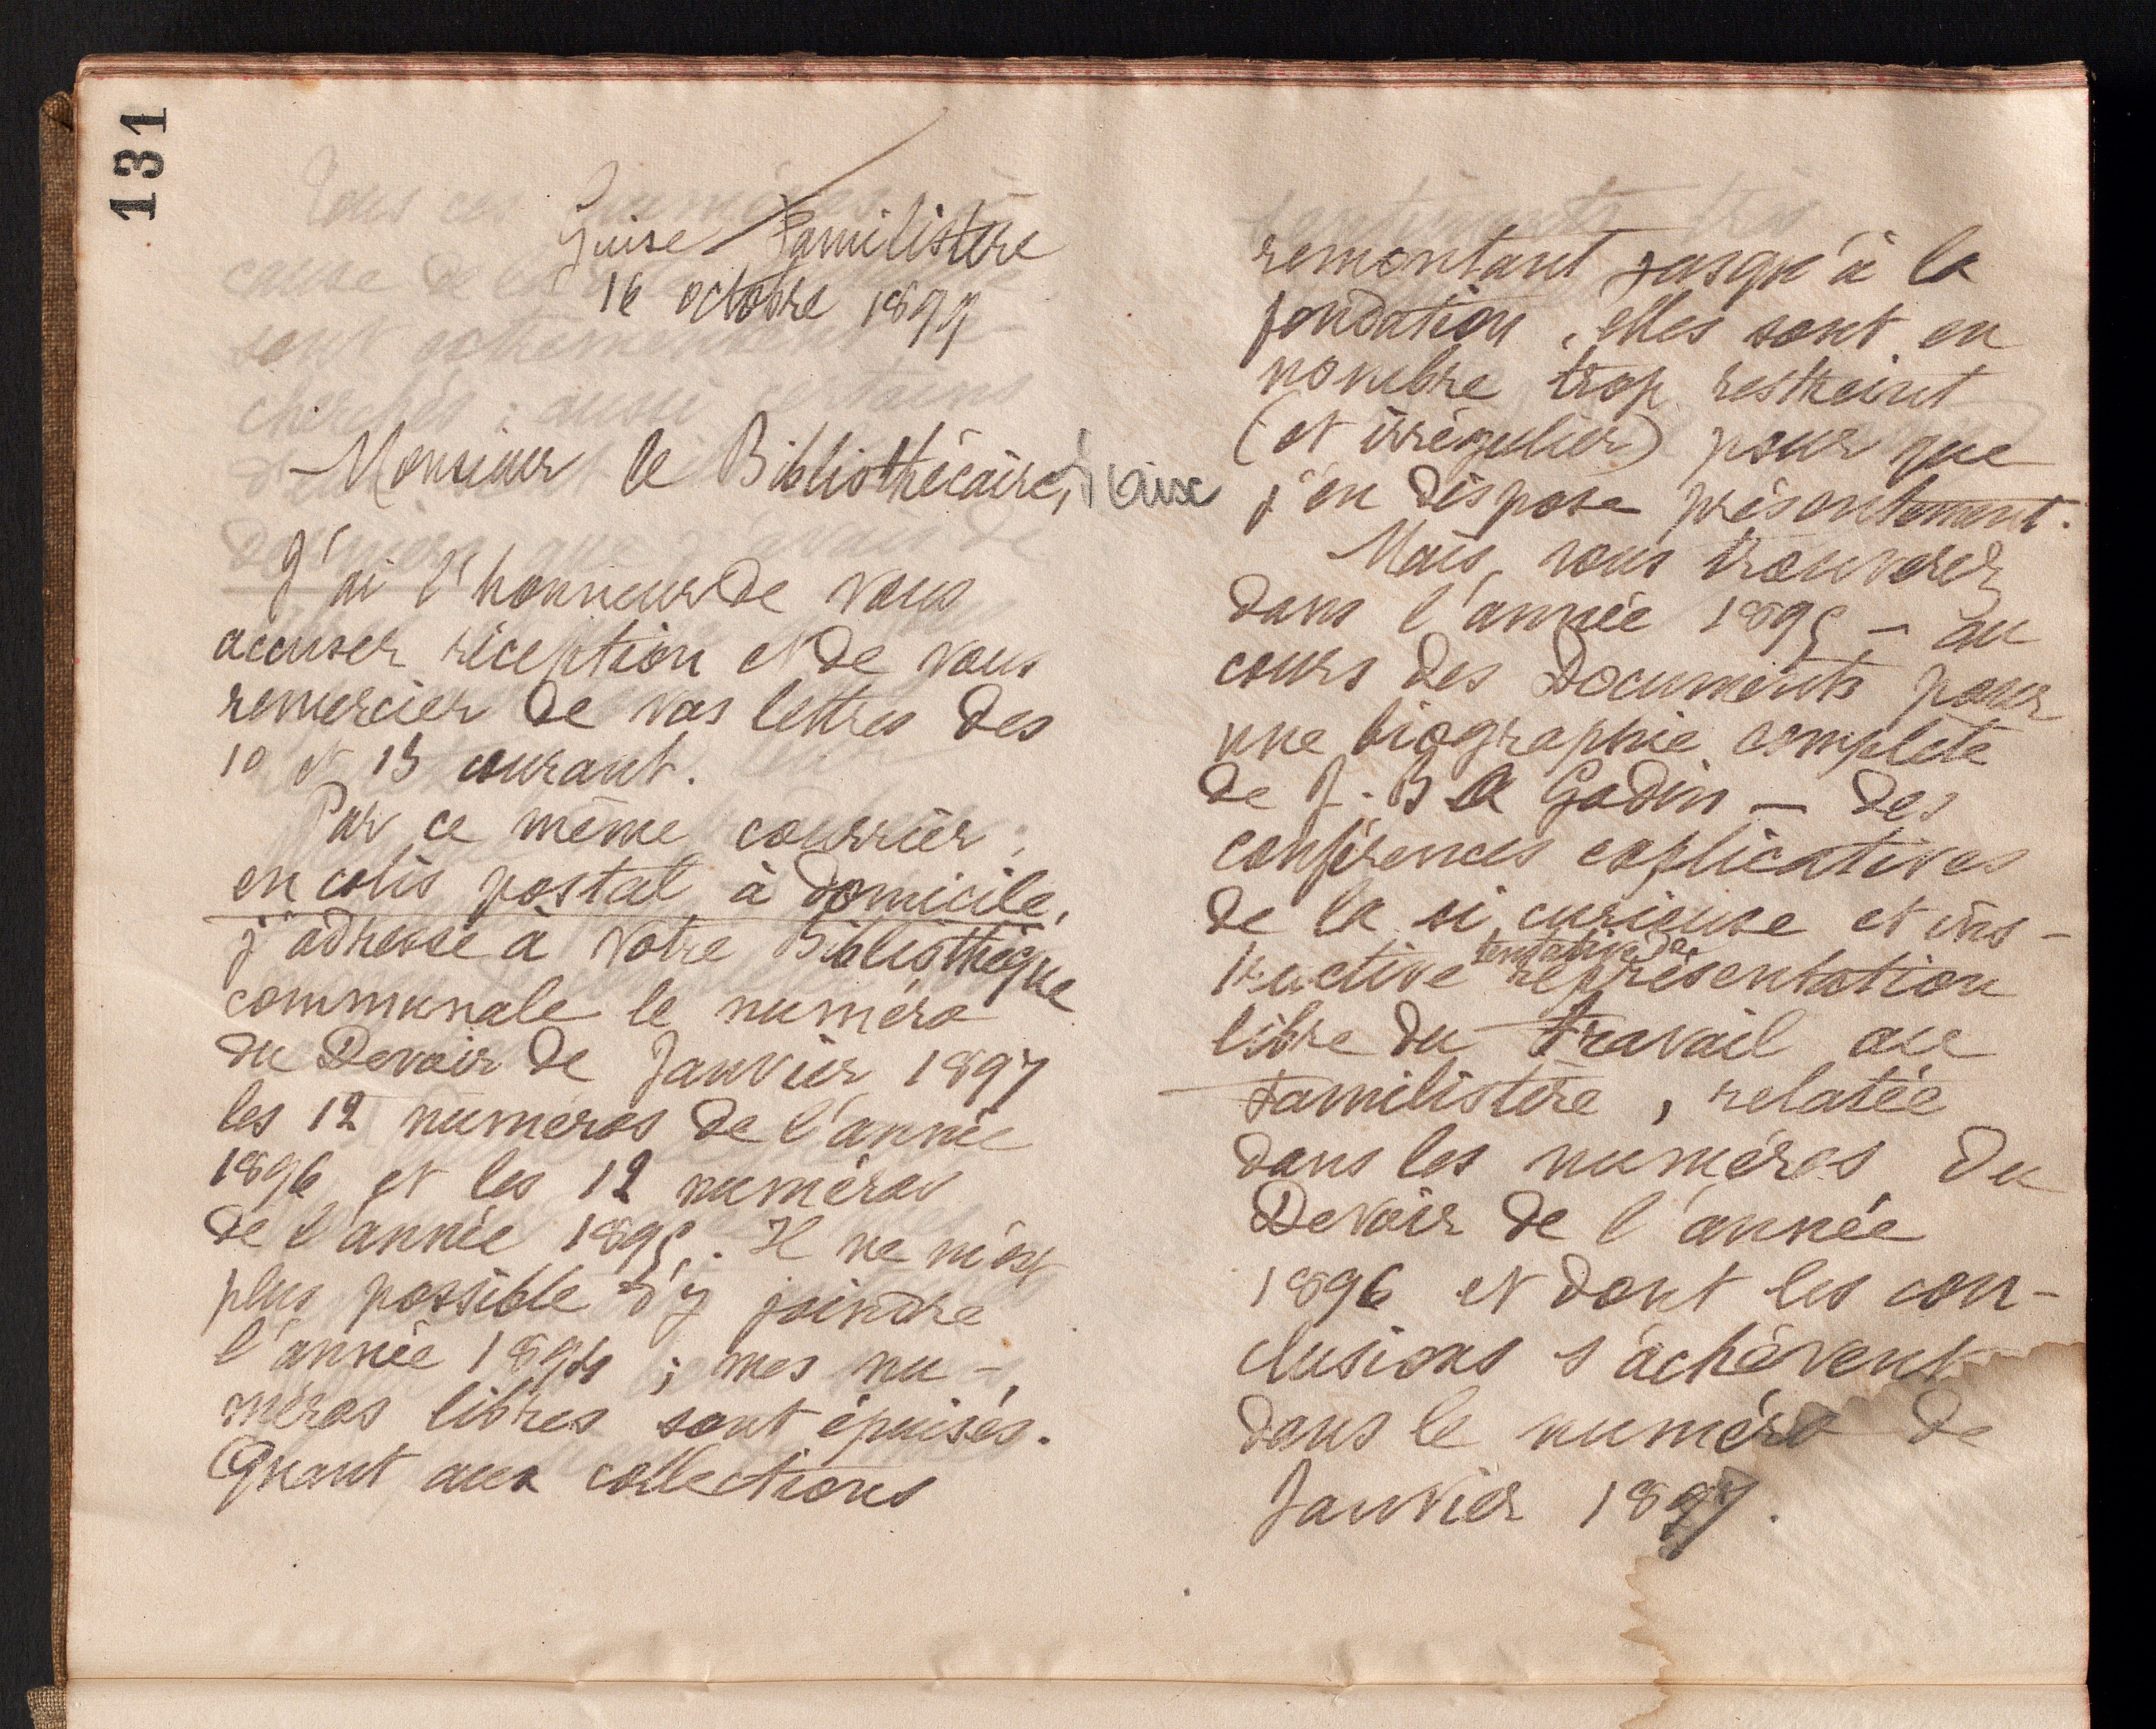 131
Guise Familistère
16 octobre 1897
Monsieur le Bibliothécaire, d'Aix
J'ai l'honneur de vous
accuser réception et de vous
remercier de vos lettres des
10 et 13 courant.
Par ce même courrier,
en colis postal à domicile,
j'adresse à votre Bibliothèque
communale le numéro
du Devoir de Janvier 1897
les 12 numéros de l'année
1896 et les 12 numéros
de l'année 1895. Il ne m'est
plus possible d'y joindre
l'année 1894 ; mes nu-
méros libres sont épuisés.
Quant aux collections
remontant jusqu'à la
fondation, elles sont en
nombre trop restreint
(et irrégulier) pour que
j'en dispose présentement.
Mais, vous trouverez
dans l'année 1895 - au
cours des Documents pour
une biographie complète
de J. B. A Godin - des
conférences explicatives
de la si curieuse et ins-
tructive tentative de représentation
libre du travail au
Familistère, relatée
dans les numéros du
Devoir de l'année
1896 et dont les con-
clusions s'achèvent
dans le numéro de
Janvier 1897.